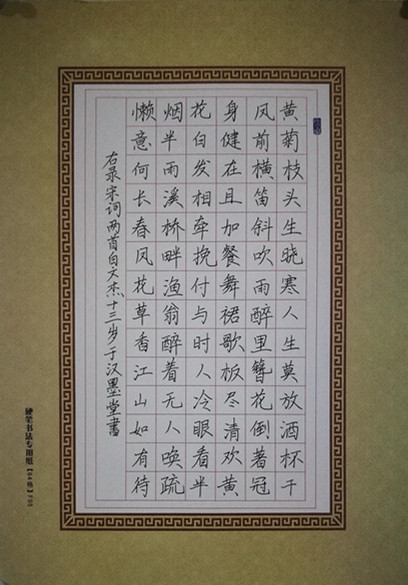 黄菊枝头生晓寒人生莫放酒杯干
风前横笛斜吹雨醉里簪花倒著冠
身健在且加餐舞裙歌板尽清欢黄
花白发相牵挽付与时人冷眼看半
烟半雨溪桥畔渔翁醉着无人唤疏
懒意何长春风花草香江山如有待
右录宋词两首白文杰十三岁于汉墨堂书
硬笔书法专用纸【84格】